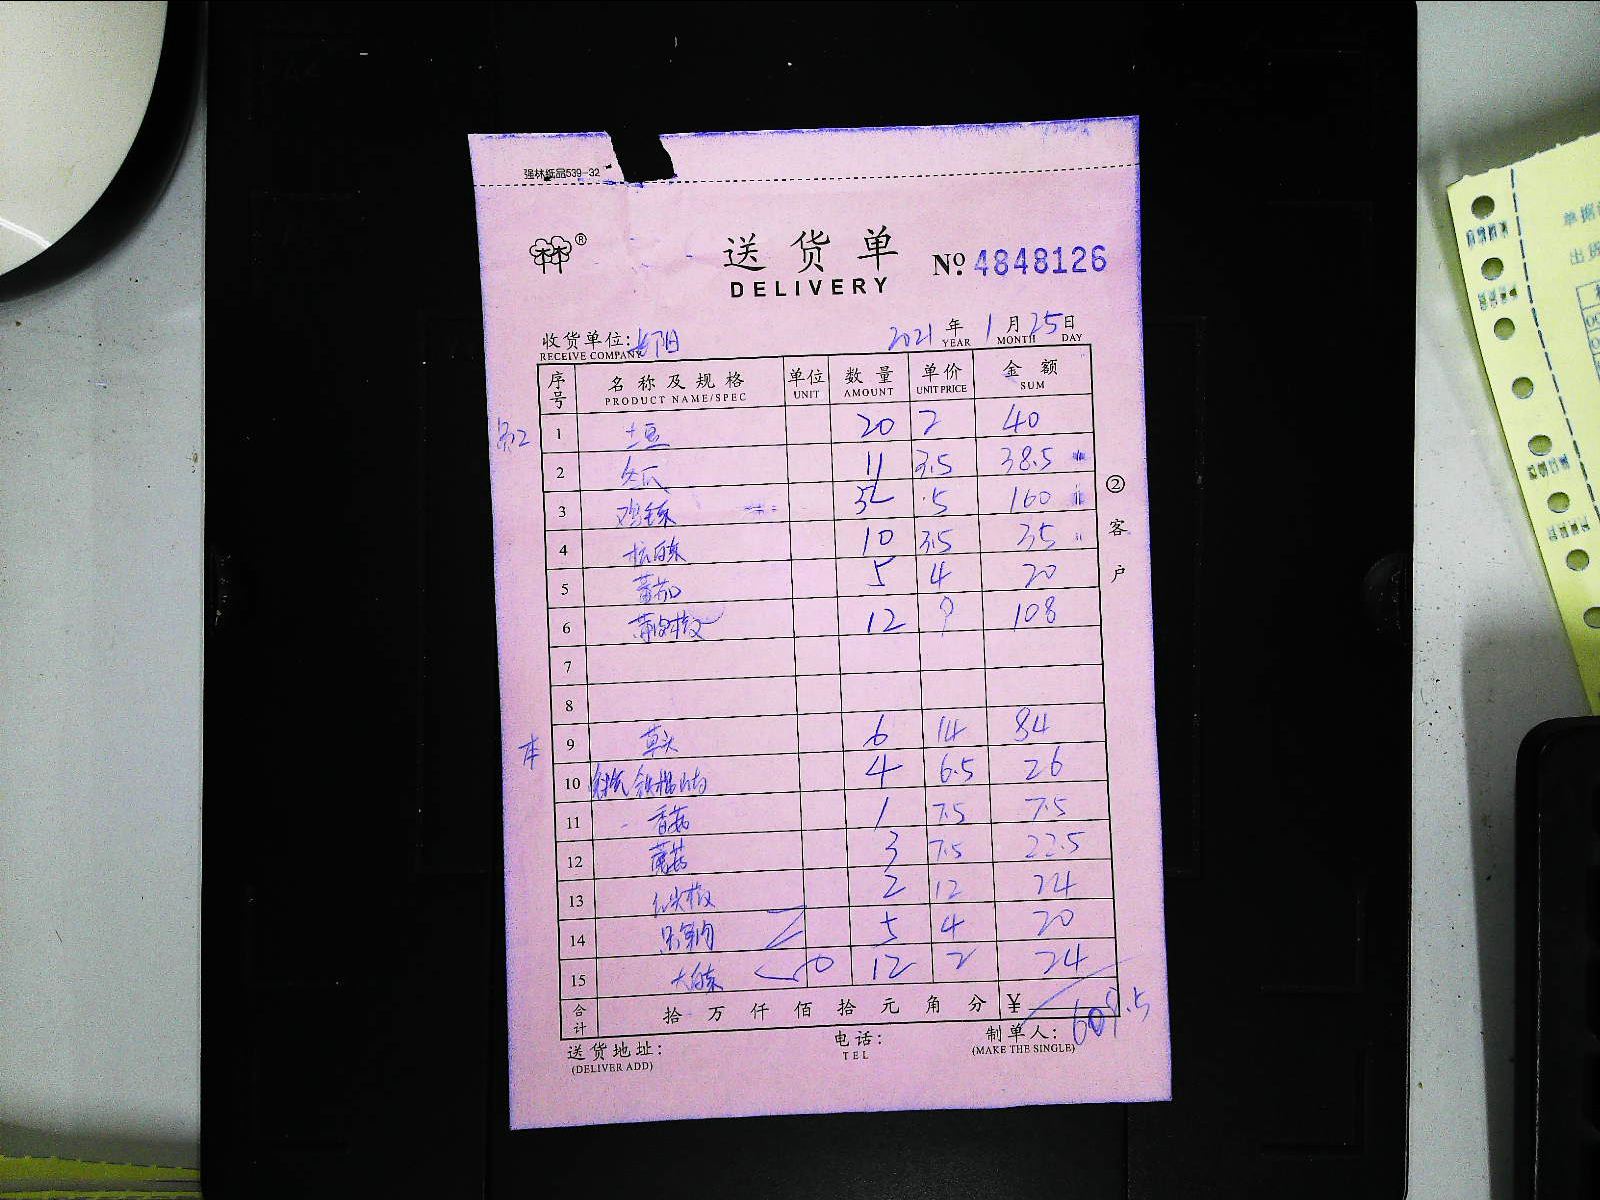 强林纸品539-32
林®
送货单 № 4848126
DELIVERY
收货单位: 2021 年 1 月 25 日
RECEIVE COMPANY YEAR MONTH DAY
序号 名称及规格 单位 数量 单价 金额
PRODUCT NAME/SPEC UNIT AMOUNT UNIT PRICE SUM
1 土豆 20 2 40
2 冬瓜 11 3.5 38.5
3 32 5 160
4 10 3.5 35
5 蕃茄 5 4 20
6 12 9 108
7
8
本 9 草头 6 14 84
10 4 6.5 26
11 香菇 1 7.5 7.5
12 蘑菇 3 7.5 22.5
13 2 12 24
14 5 4 20
15 12 2 24
合计 拾 万 仟 佰 拾 元 角 分 ¥ 609.5
送货地址: 电话: 制单人:
(DELIVER ADD) TEL (MAKE THE SINGLE)
②客户
单据
出货